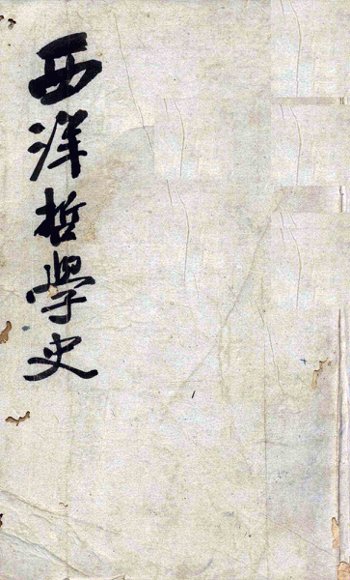 西洋哲學史